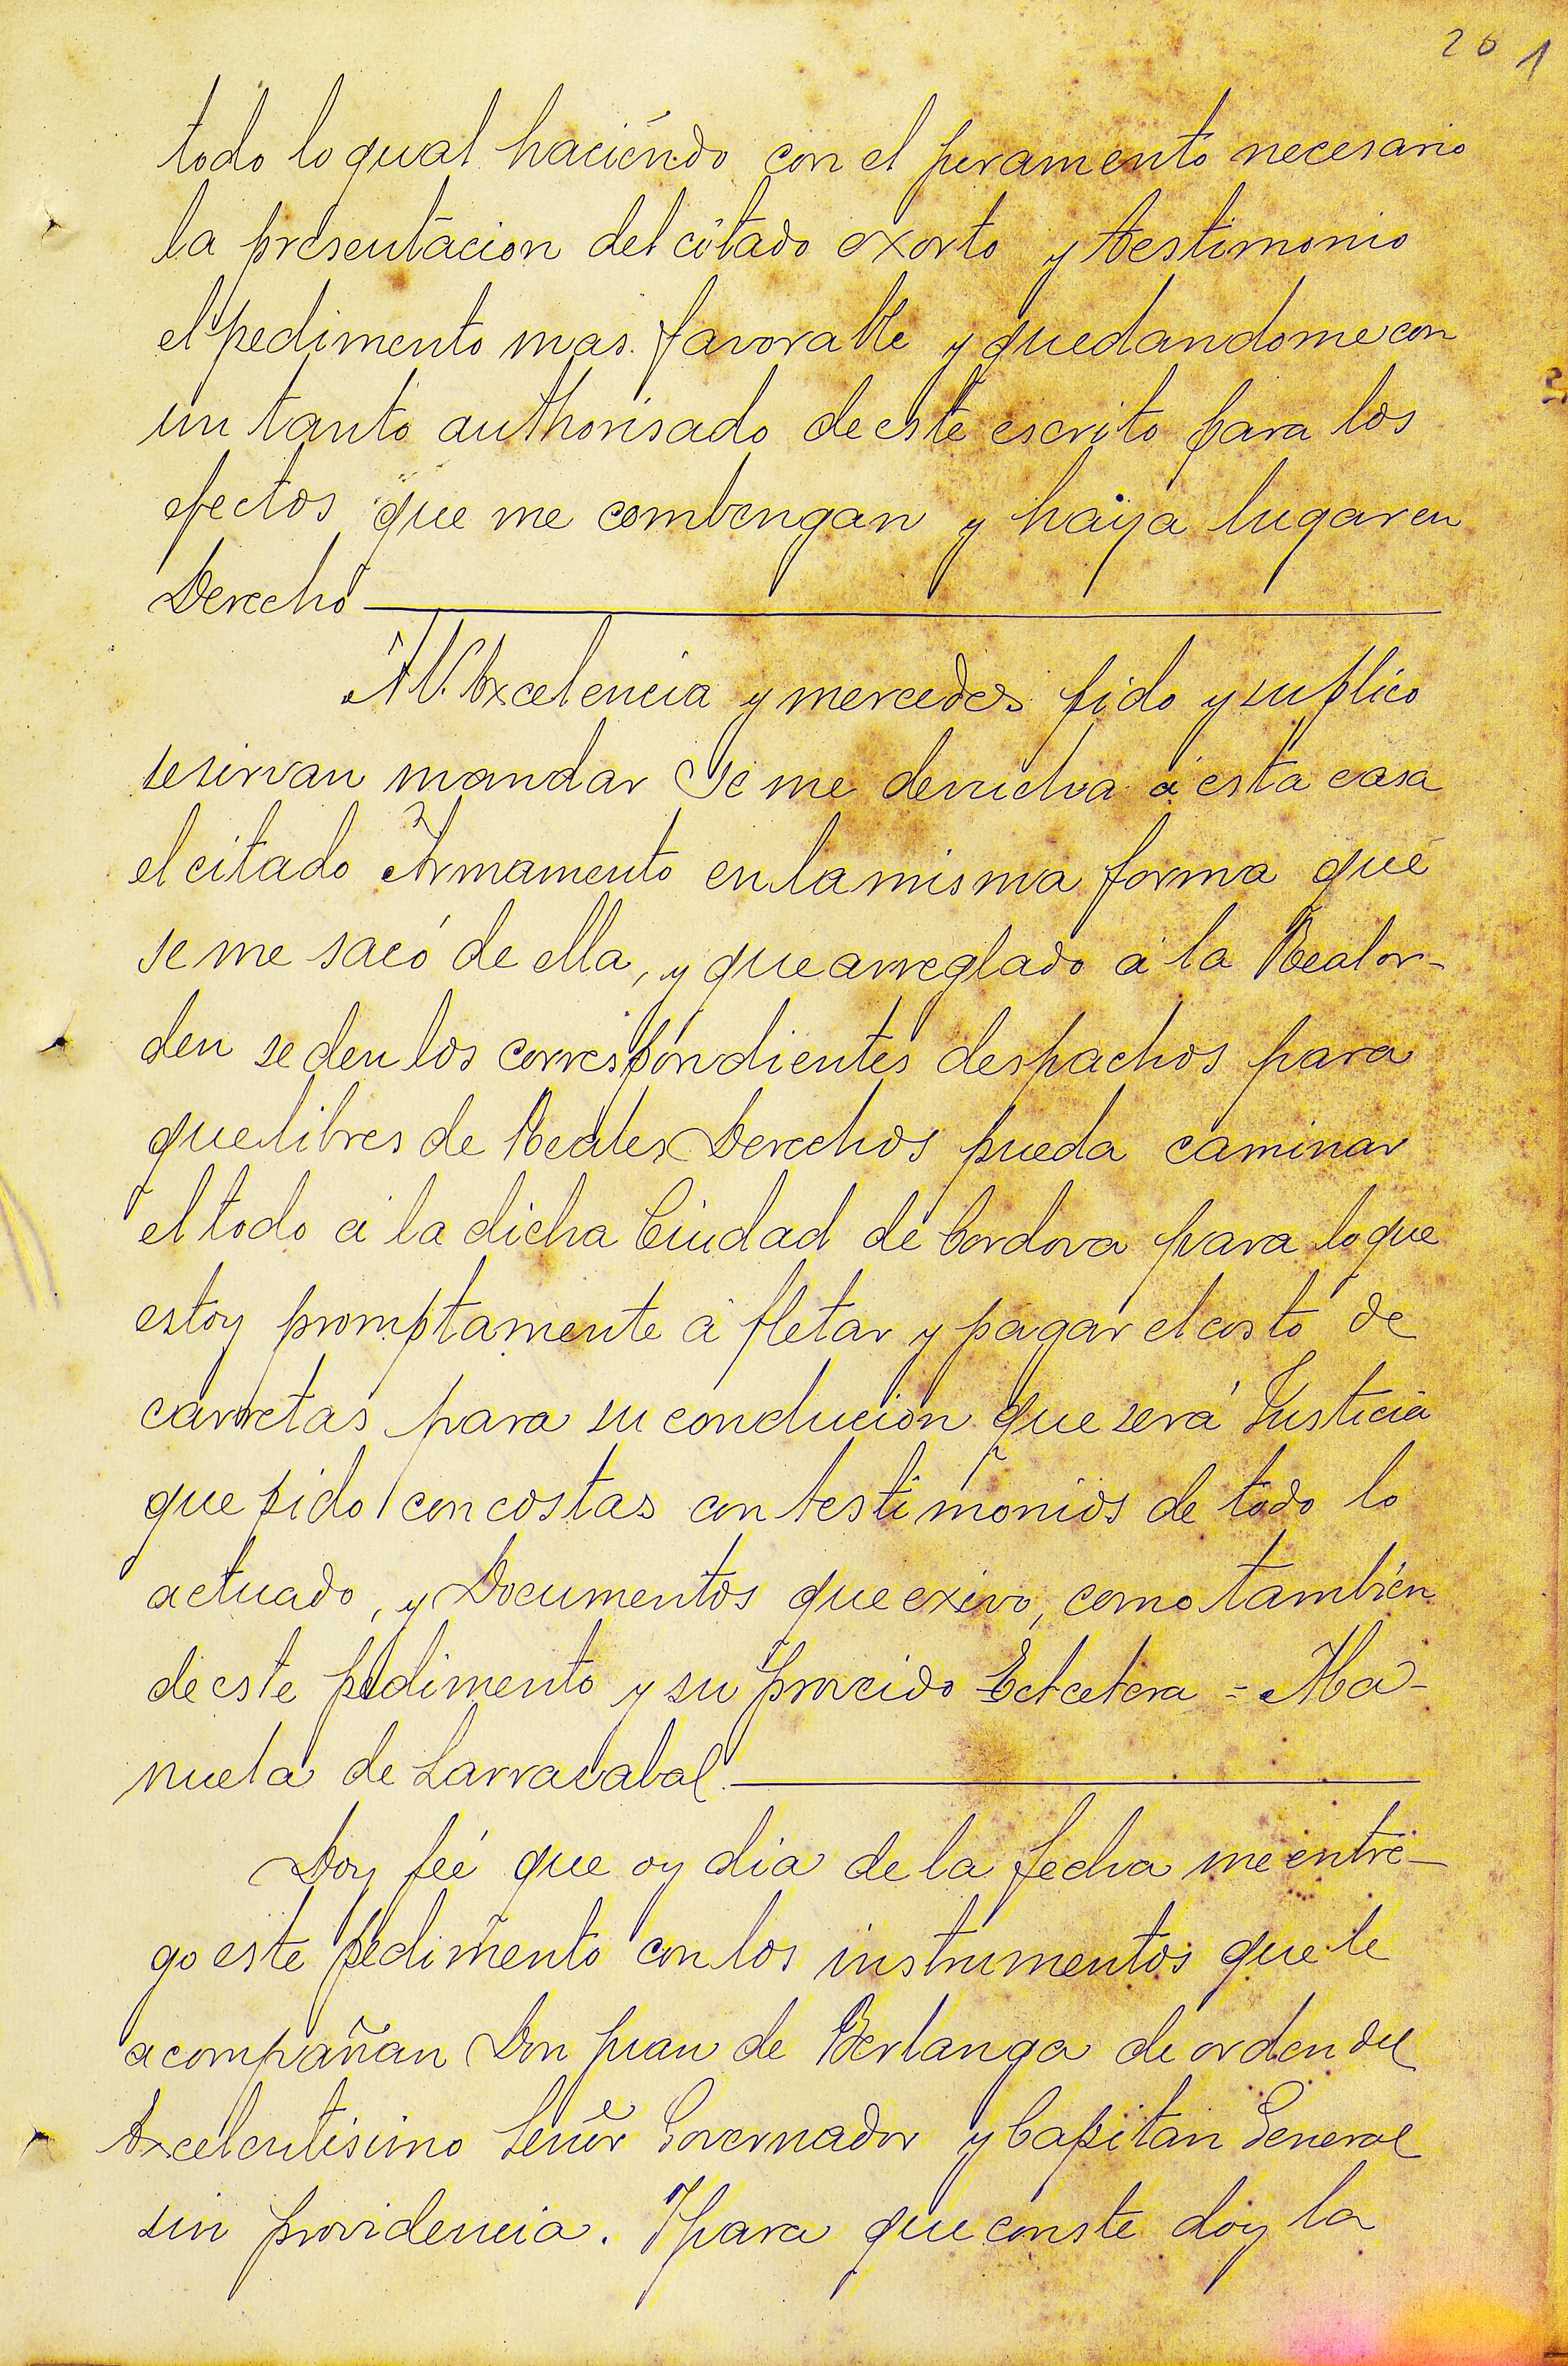 261
todo lo qual haciéndo con el juramento necesario
la presentacion del citado exorto y testimonio
el pedimento mas favorable y quedandome con
un tanto authorisado de este escrito para los
efectos que me combengan y haya lugar en
Derecho
A V. Excelencia y mercedes pido y suplico
se sirvan mandar se me devuelva á esta casa
el citado Armamento en la misma forma que
se me sacó de ella, y que arreglado á la Real or-
den se den los correspondientes despachos para
que libres de Reales Derechos pueda caminar
el todo á la dicha Ciudad de Cordova para lo que
estoy promptamente á fletar y pagar el costo de
carretas para su conducion que será Justicia
que pido con costas con testimonios de todo lo
actuado, y Documentos que exivo, como tambien
de este pedimento y su proveido Etcetera = Ma-
nuela de Larrazabal
Doy feé que oy dia de la fecha me entre-
go este pedimento con los instrumentos que le
acompañan Don Juan de Berlanga de orden del
Excelentisimo Señor Governador y Capitan General
sin providencia. Y para que conste doy la